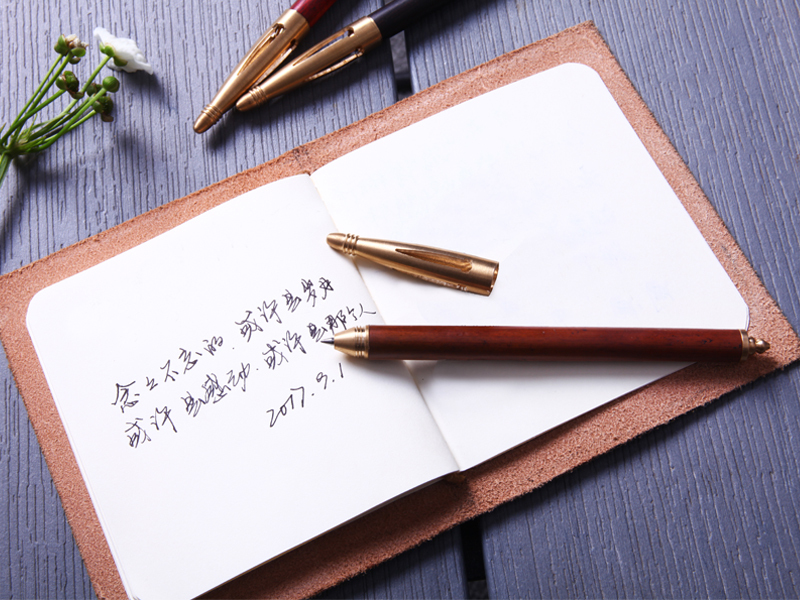 念々不忘的,或许是岁月
或许是感动,或许是那个人
2017.9.1